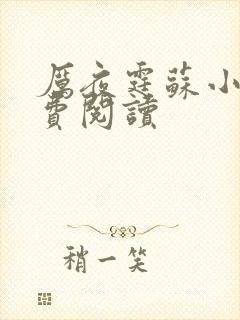 厲夜霆蘇小
費閱讀
稍一笑